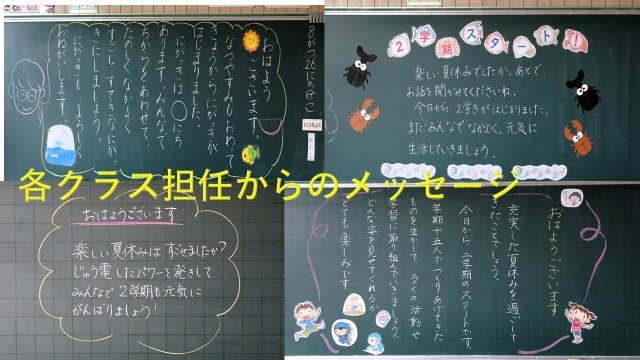 おはよう
ございます。
なつやすみもおわって
きょうから にがっきが
はじまりました。
にがっきは〇にち
あります。みんなで
ちからをあわせて、
たのしく なかよく
すごし、すてきな にがっ
きにしましょう。
にがっきも よろ
おねがいします。
8がつ26にち
にっちょく
2学期スタート!
楽しい夏休みでしたか。あとで、
お話を聞かせてくださいね。
今日から、2学きがはじまりました。
また、みんなで なかよく、元気に
生活していきましょう。
各クラス担任からのメッセージ
おはようございます
楽しい夏休みは すごせましたか?
じゅう電したパワーを発きして
みんなで 2学期も元気に
がんばりましょう!
おはようございます
充実した夏休みを過ごして
きたことでしょう。
今日から、二学期のスタートです。
一学期十五人でつくりあげてきた
ものを生かして、多くの活動や
学習に取り組んでいきましょう。
どんな姿を見せてくれるか
とても楽しみです。